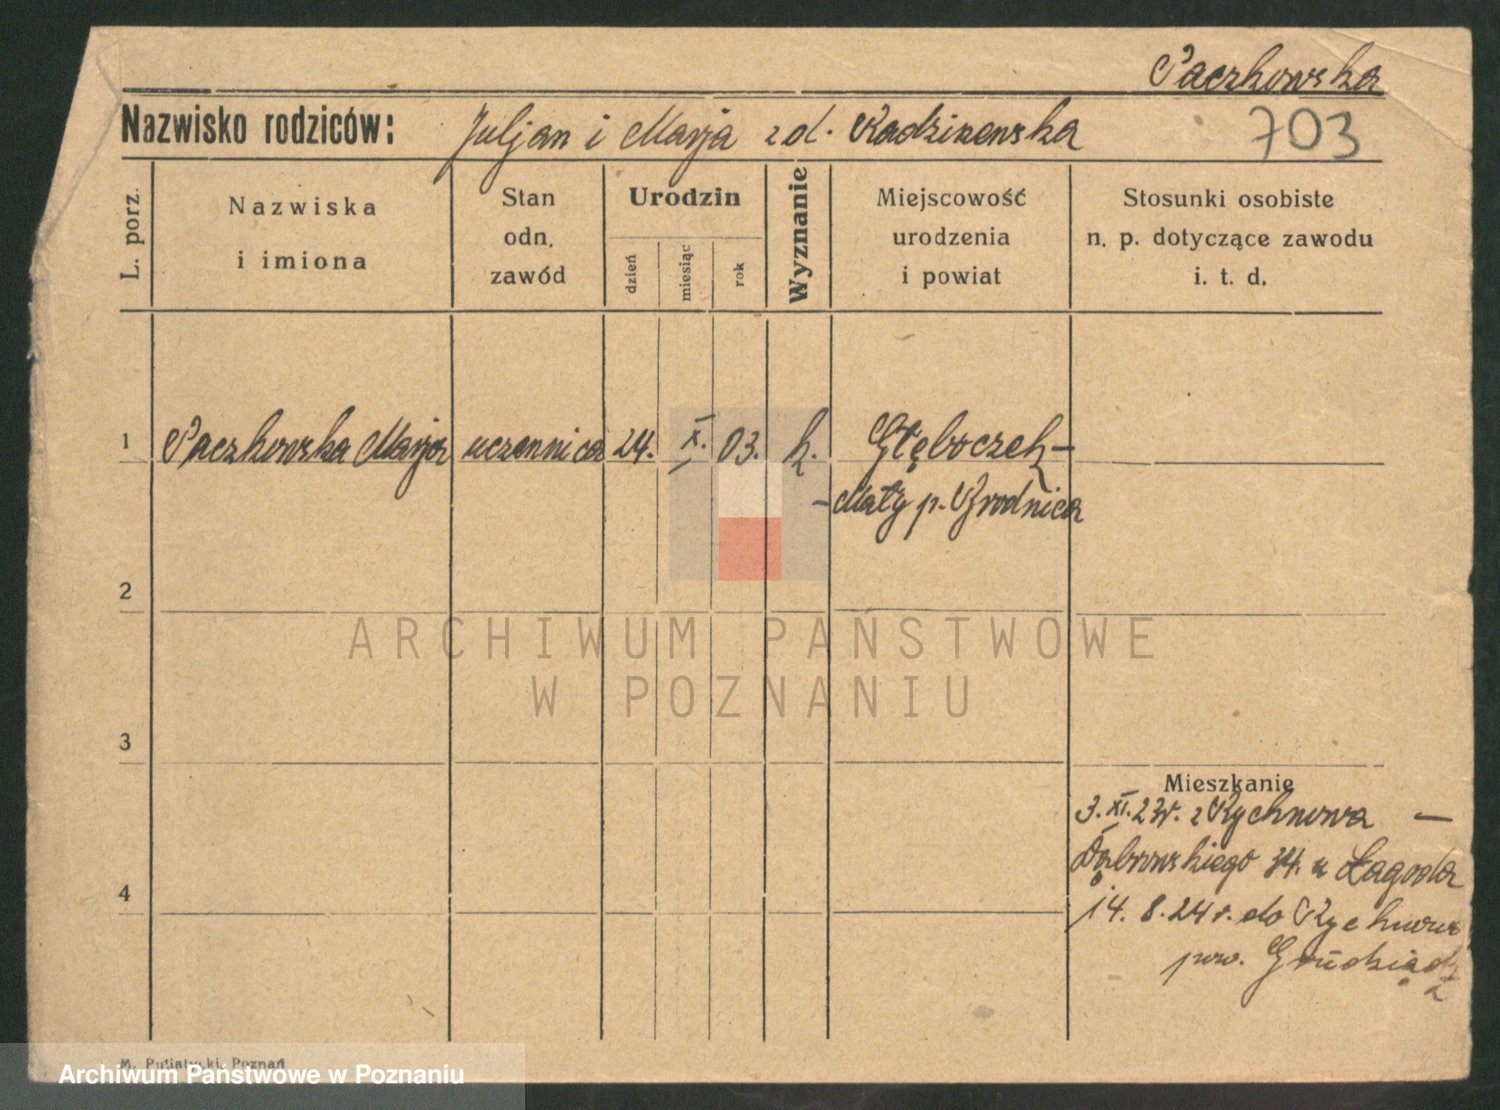 Paczkowska
Nazwisko rodziców: Juljan i Marja zd. 703
L. porz.
Nazwiska
i imiona
Stan
odn.
zawód
Urodzin
dzień
miesiąc
rok
Wyznanie
Miejscowość
urodzenia
i powiat
Stosunki osobiste
n. p. dotyczące zawodu
i. t. d.
1 Paczkowska Marja uczennica 24. X. 03. k. Głęboczek-
-Mały p. Brodnica
2
ARCHIWUM PAŃSTWOWE
W POZNANIU
3
Mieszkanie
3.XI.23r. z Rychnowa -
Dąbrowskiego 34. u Łagoda
4
14. 8. 24 r. do Rychnowa
pow. Grudziądz
M. Putiatycki, Poznań
Archiwum Państwowe w Poznaniu